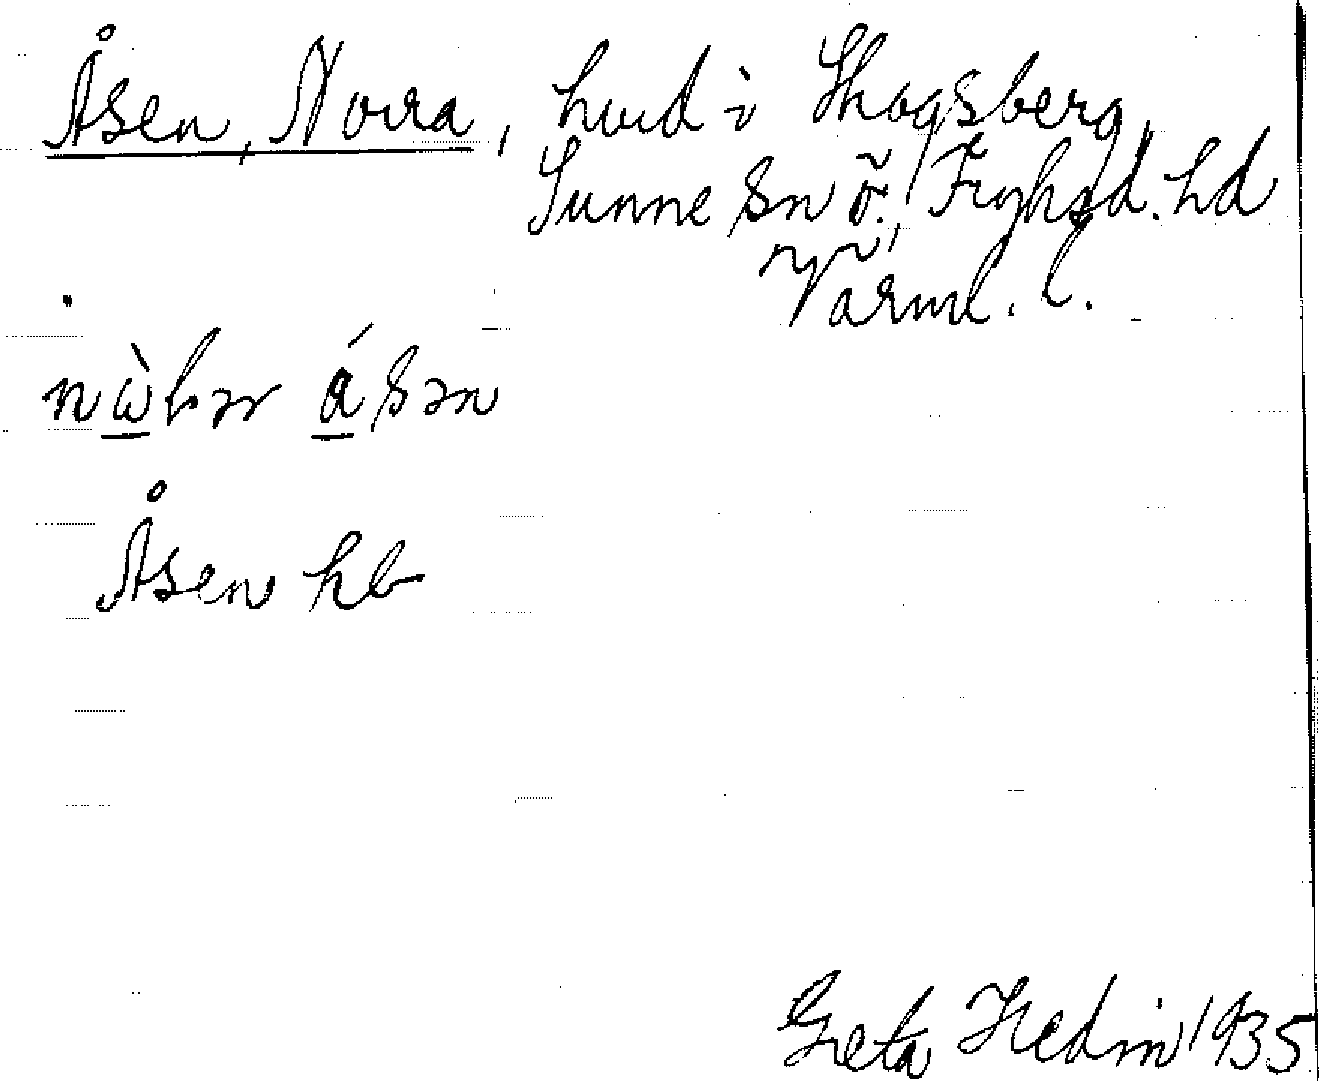 Åsen, Norra, hmd i Skogsberg,
Sunne sn Ö. Fryksd. hd
Värml. l.
åsən
Åsen kb
Greta Hedin 1935